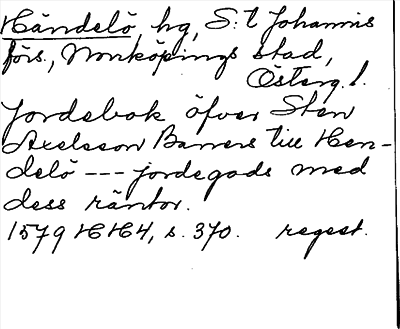 Händelö, hg, S:t Johannis
förs., Norrköpings stad,
Österg. l.
Jordebok öfver Sten
Axelsson Baners till Hen-
delö --- jordegods med
dess räntor.
1579 HH4, s. 370. regest.